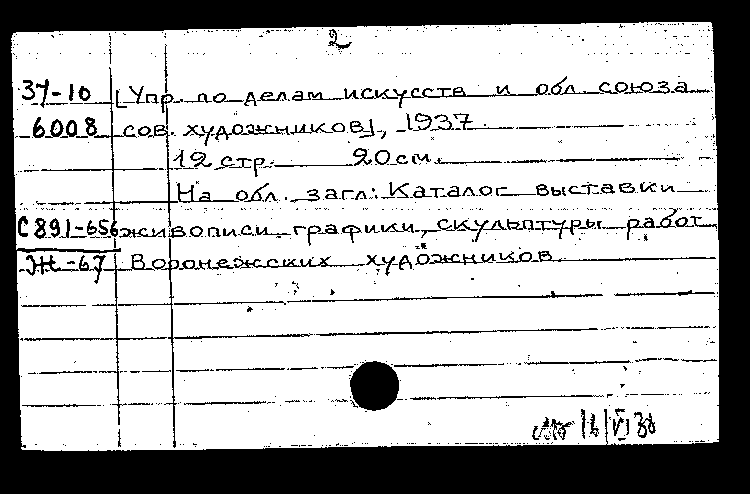 2
37-10 [Упр. по делам искусств и обл. союза
6008 сов. художников], 1937.
12 стр. 20 см.
На обл. загл.: Каталог выставки
С891-656 живописи графики, скульптуры работ
Ж-67 Воронежских художников.
16/VI 38